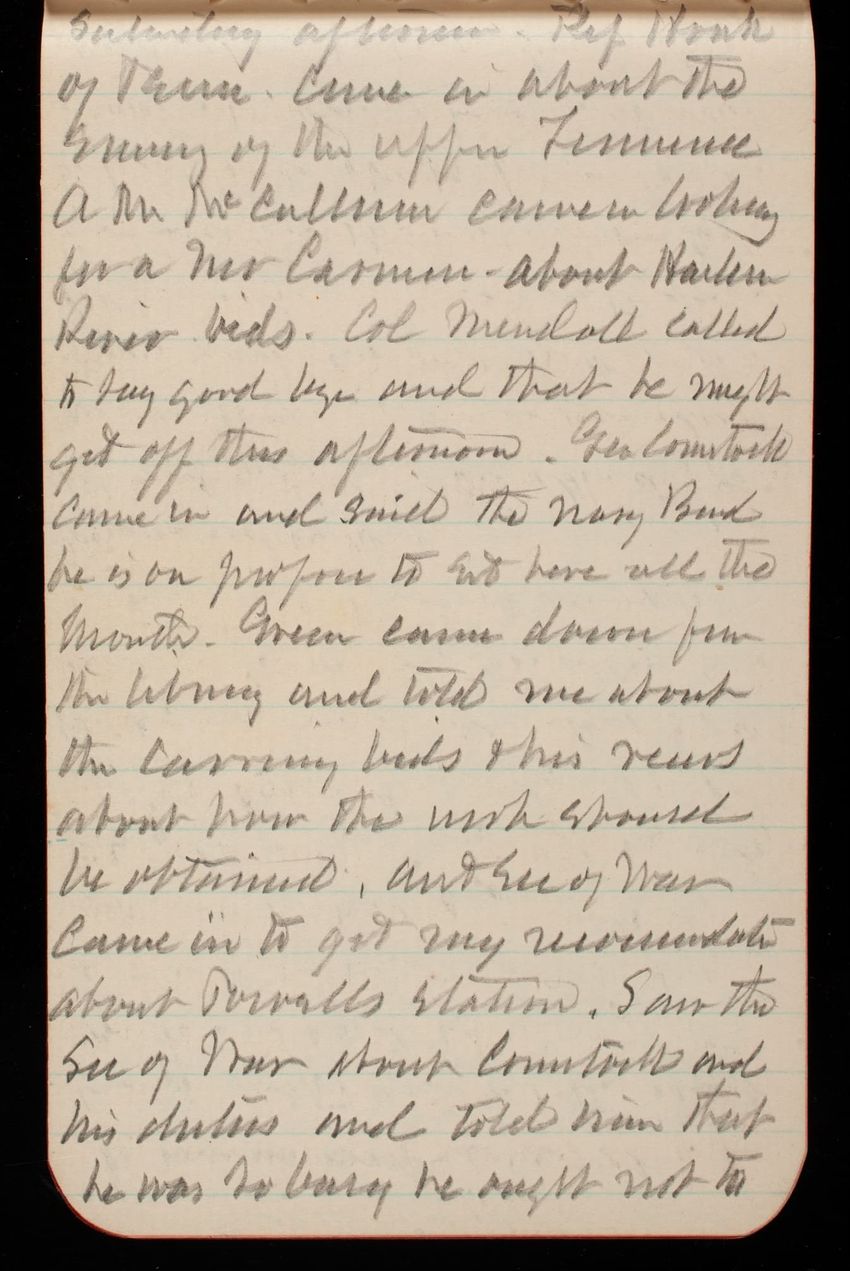 Saturday afternoon. Rep Houk
of Tenn. Came in about the
Survey of the upper Tennessee
A Mr McCullum came in looking
for a Mr Carmen - about Harlem
River bids. Col Mendall called
to say good bye and that he might
get off this afternoon. Geo Comstock
came in and said the Navy Board
he is on propose to sit here all the
Month. Green came down from
the library and told me about
the Carving bids & his views
about how the work should
be obtained, Sec of War
came in to get my recommendation
about station. Saw the
Sec of War about Comstock and
his duties and told him that
he was so busy he ought not to